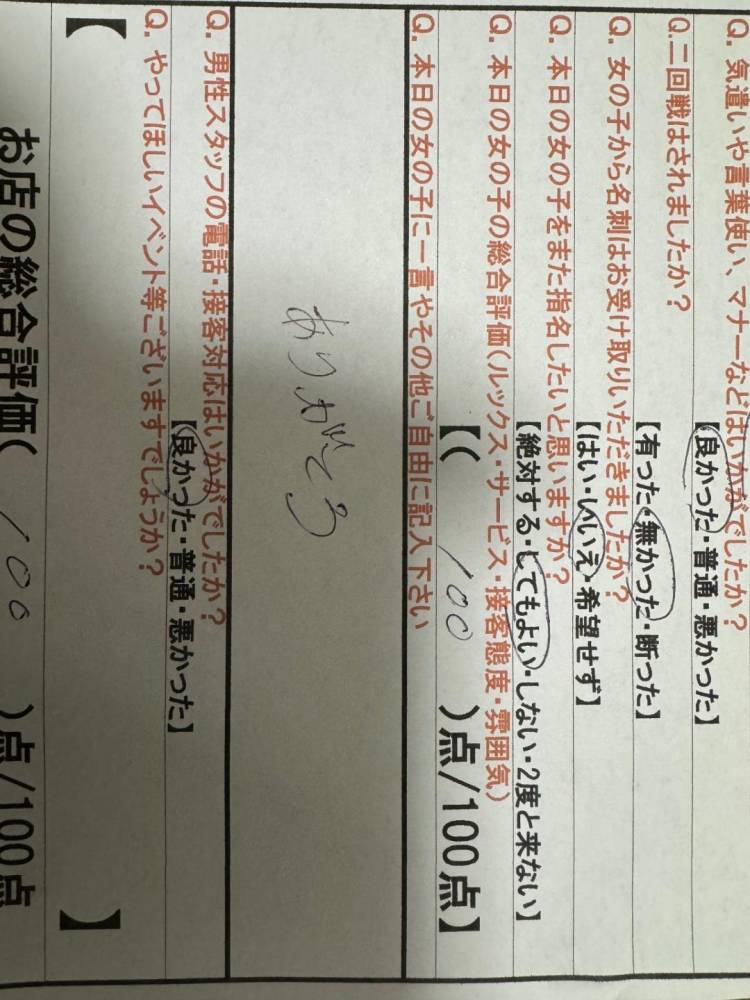 Q. 気遣いや言葉使い、マナーなどはいかがでしたか？
【良かった・普通・悪かった】
Q.二回戦はされましたか？
【有った・無かった・断った】
Q. 女の子から名刺はお受け取りいただきましたか？
【はい・いいえ・希望せず】
Q. 本日の女の子をまた指名したいと思いますか？
【絶対する・してもよい・しない・2度と来ない】
Q. 本日の女の子の総合評価(ルックス・サービス・接客態度・雰囲気)
【( 100 )点/100点】
Q. 本日の女の子に一言やその他ご自由に記入下さい
ありがとう
Q. 男性スタッフの電話・接客対応はいかがでしたか？
【良かった・普通・悪かった】
Q. やってほしいイベント等ございますでしょうか？
【 】
お店の総合評価( 100 )点/100点